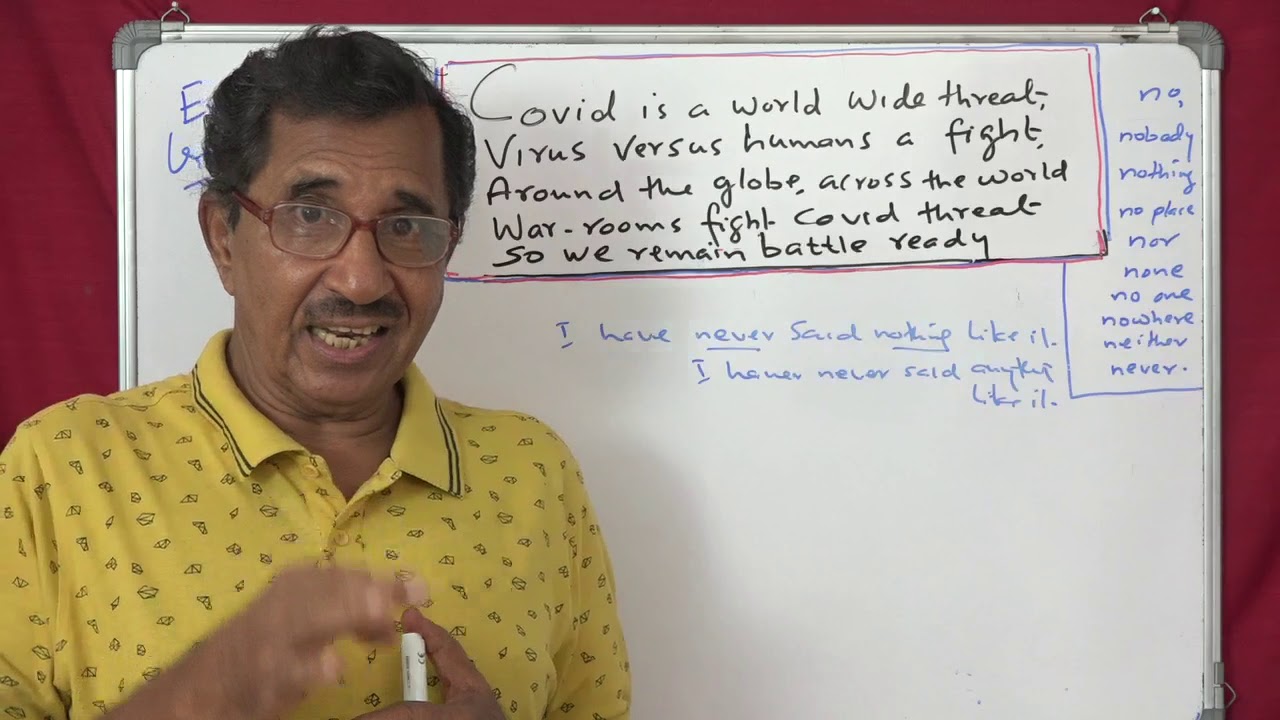 Covid is a world wide threat,
Virus versus humans a fight,
Around the globe, across the world
War-rooms fight covid threat
so we remain battle ready
no,
nobody
nothing
no place
nor
none
no one
nowhere
neither
never.
I have never said nothing like it.
I haver never said anything
like it.